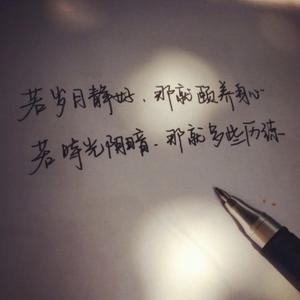 若岁月静好，那就颐养身心
若時光阴暗，那就多些历练